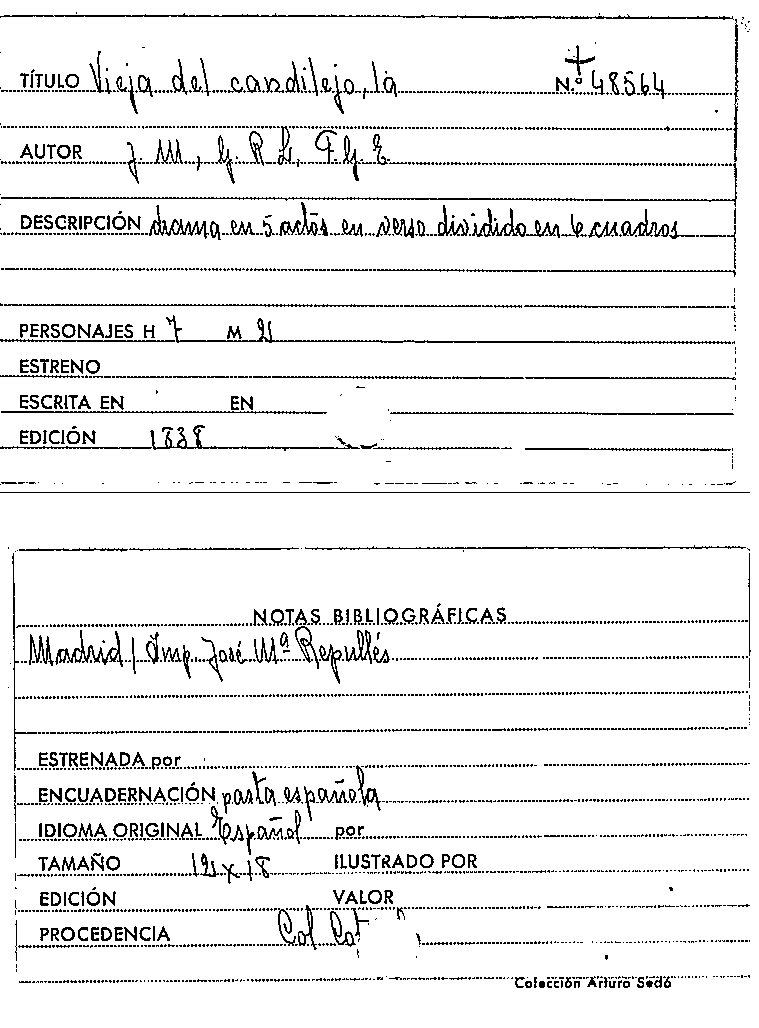 TÍTULO Vieja del candilejo, la N.º 48564
AUTOR J. M., G. R L, F. G. E
DESCRIPCIÓN drama en 5 actos en verso dividido en 6 cuadros
PERSONAJES H 7 M 2
ESTRENO
ESCRITA EN EN
EDICIÓN 1838
NOTAS BIBLIOGRÁFICAS
Madrid / Imp. José Mª Repullés
ESTRENADA por
ENCUADERNACIÓN pasta española
IDIOMA ORIGINAL Español por
TAMAÑO 12 x 18 ILUSTRADO POR
EDICIÓN VALOR
PROCEDENCIA Col
Colección Arturo Sedó